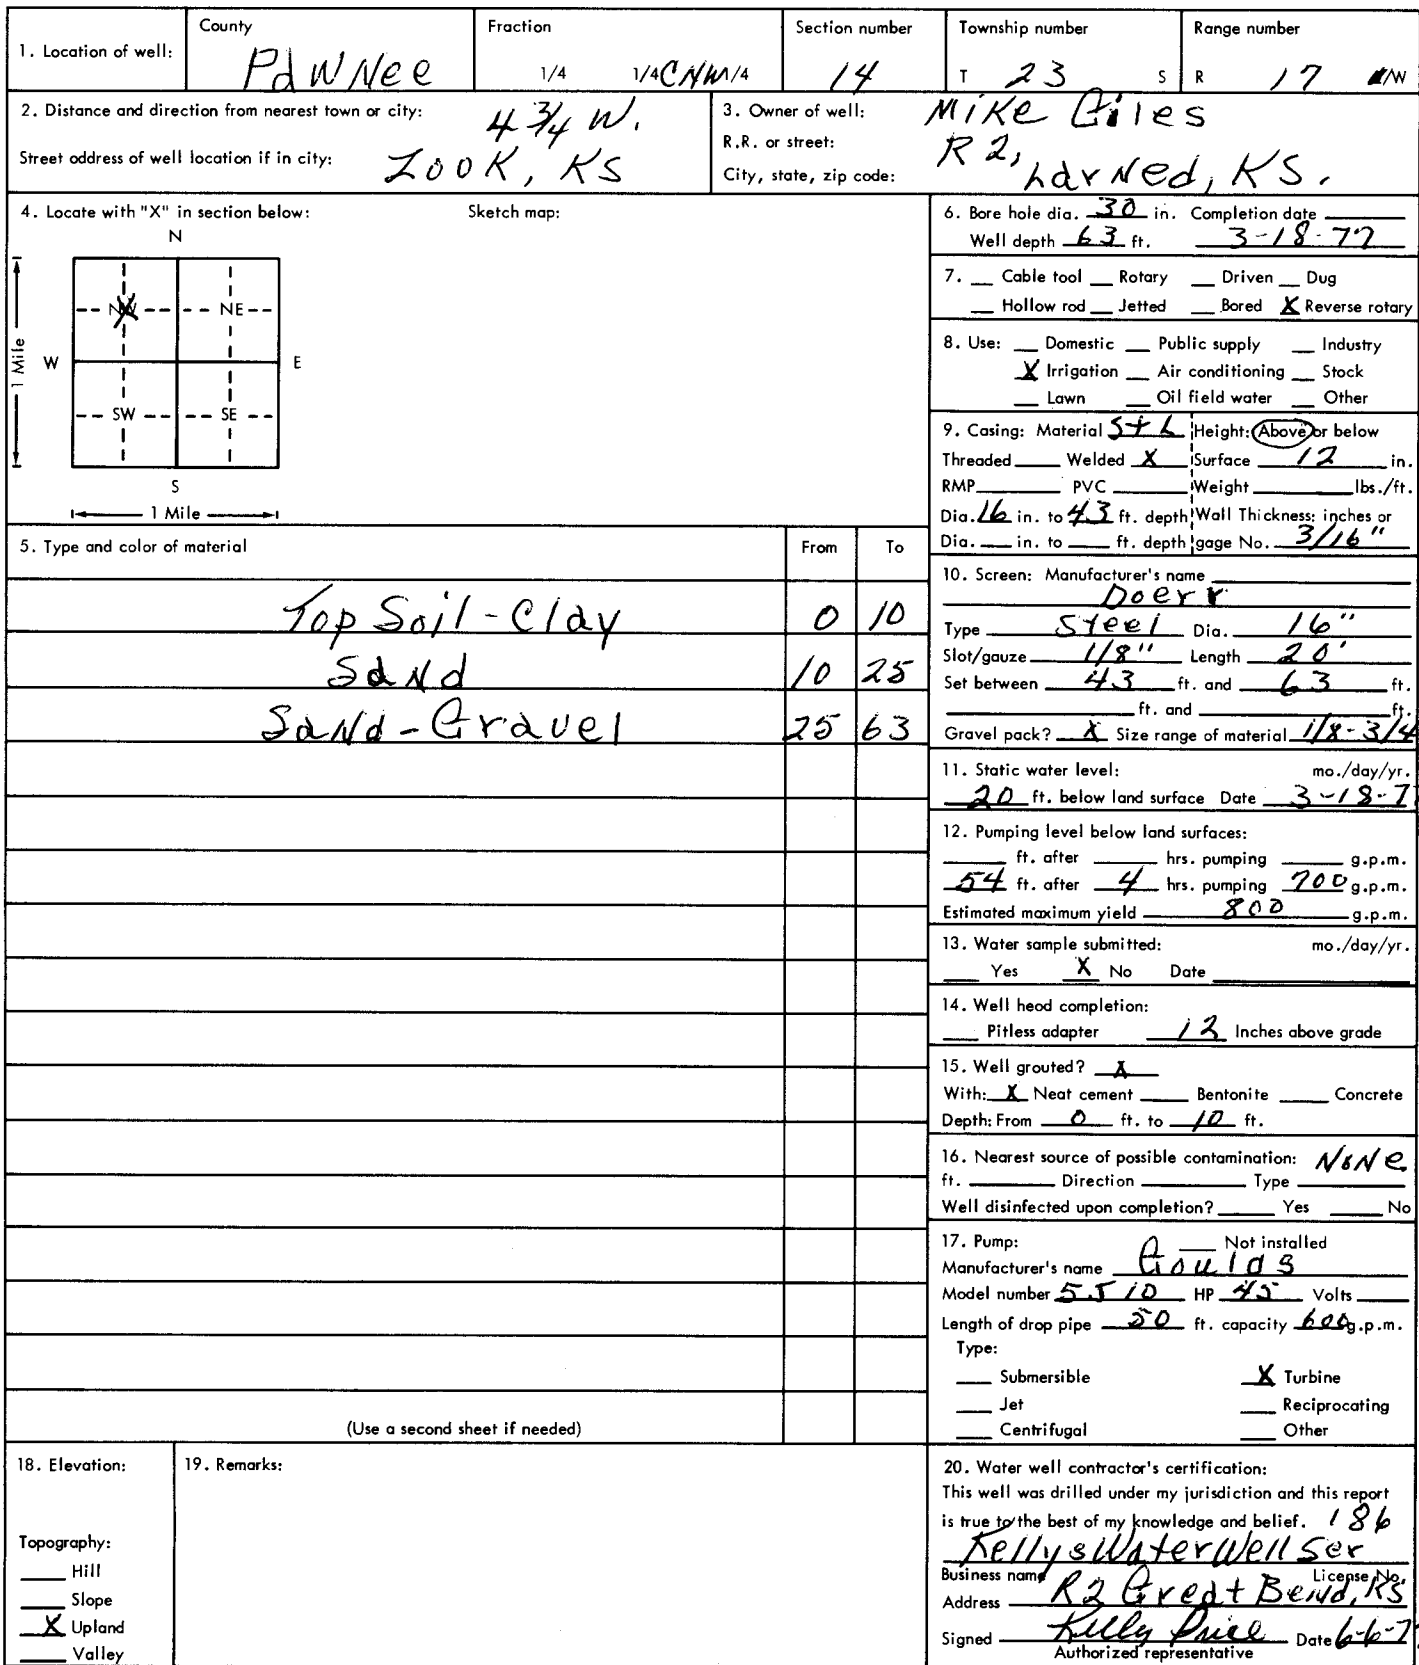 1. Location of well:
County
Pawnee
Fraction
1/4 1/4 CNW 1/4
Section number
14
Township number
T 23 S
Range number
R 17 /W
2. Distance and direction from nearest town or city: 4 3/4 W.
Street address of well location if in city: Zook, KS
3. Owner of well: Mike Giles
R.R. or street: R 2,
City, state, zip code: Larned, KS.
4. Locate with "X" in section below: Sketch map:
N
NW NE
W E
1 Mile
SW SE
S
1 Mile
5. Type and color of material From To
Top Soil - Clay 0 10
Sand 10 25
Sand - Gravel 25 63
(Use a second sheet if needed)
6. Bore hole dia. 30 in. Completion date
Well depth 63 ft. 3-18-77
7. Cable tool Rotary Driven Dug
Hollow rod Jetted Bored X Reverse rotary
8. Use: Domestic Public supply Industry
X Irrigation Air conditioning Stock
Lawn Oil field water Other
9. Casing: Material StL Height: Above or below
Threaded Welded X Surface 12 in.
RMP PVC Weight lbs./ft.
Dia. 16 in. to 43 ft. depth Wall Thickness: inches or
Dia. in. to ft. depth gage No. 3/16"
10. Screen: Manufacturer's name
Doerr
Type Steel Dia. 16"
Slot/gauze 1/8" Length 20'
Set between 43 ft. and 63 ft.
ft. and ft.
Gravel pack? X Size range of material 1/8-3/4
11. Static water level: mo./day/yr.
20 ft. below land surface Date 3-18-7
12. Pumping level below land surfaces:
ft. after hrs. pumping g.p.m.
54 ft. after 4 hrs. pumping 700 g.p.m.
Estimated maximum yield 800 g.p.m.
13. Water sample submitted: mo./day/yr.
Yes X No Date
14. Well head completion:
Pitless adapter 12 Inches above grade
15. Well grouted? X
With: X Neat cement Bentonite Concrete
Depth: From 0 ft. to 10 ft.
16. Nearest source of possible contamination: None
ft. Direction Type
Well disinfected upon completion? Yes No
17. Pump: Not installed
Manufacturer's name Goulds
Model number 5510 HP 45 Volts
Length of drop pipe 50 ft. capacity 600 g.p.m.
Type:
Submersible X Turbine
Jet Reciprocating
Centrifugal Other
18. Elevation:
Topography:
Hill
Slope
X Upland
Valley
19. Remarks:
20. Water well contractor's certification:
This well was drilled under my jurisdiction and this report
is true to the best of my knowledge and belief. 186
Kellys Water Well Ser
Business name License No.
Address R2 Great Bend, KS
Signed Kelly Price Date 6-6-7
Authorized representative